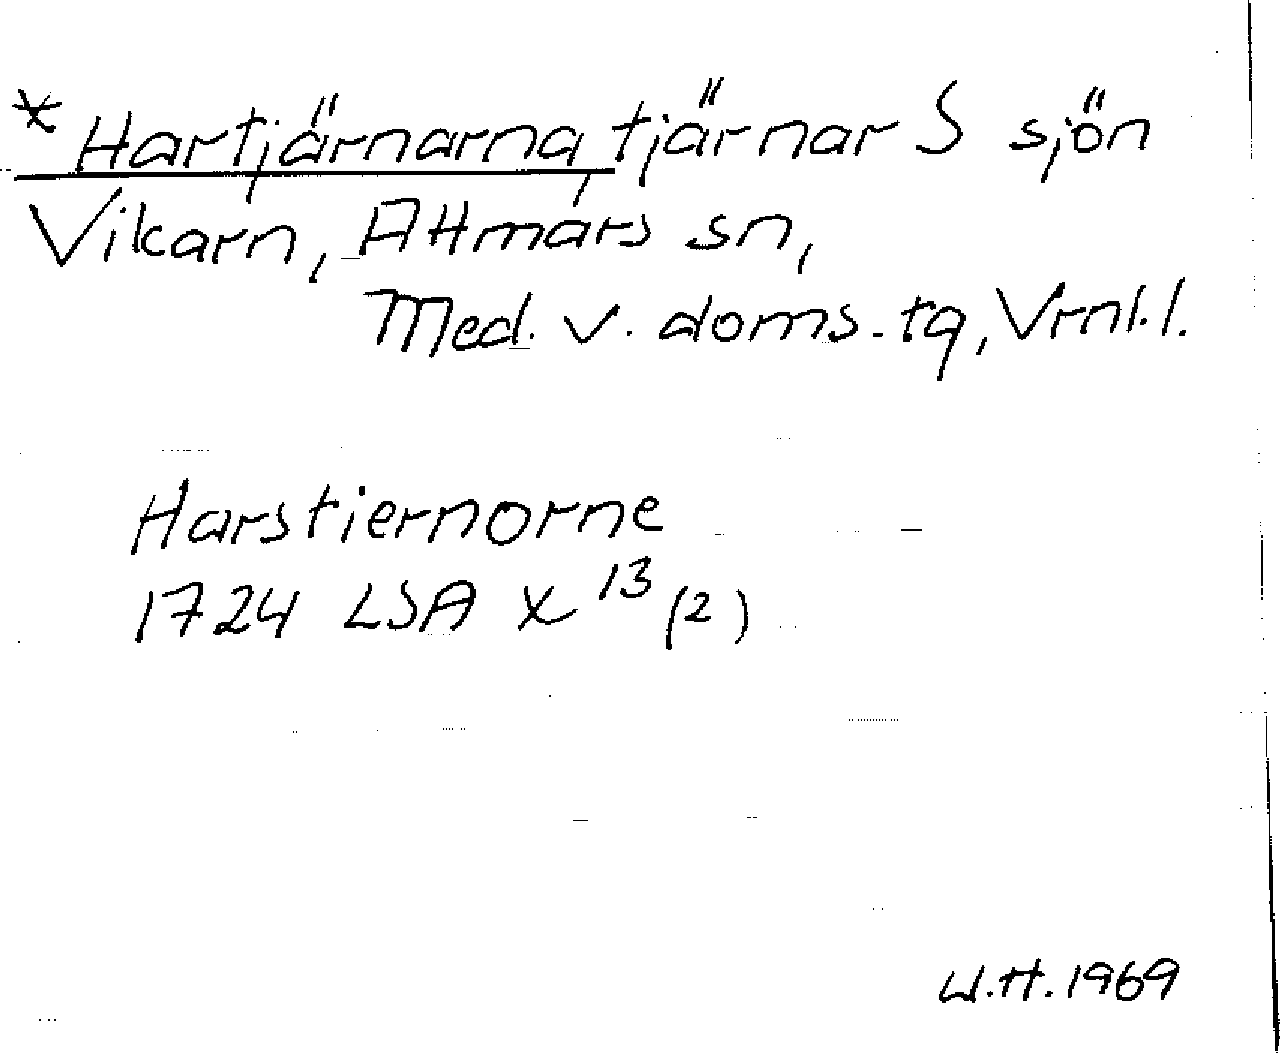 *Hartjärnarna, tjärnar S sjön
Vikarn, Attmars sn,
Med. v. doms. tg, Vrnl.l.
Harstiernorne
1724 LSA X 13 (2)
W.H. 1969